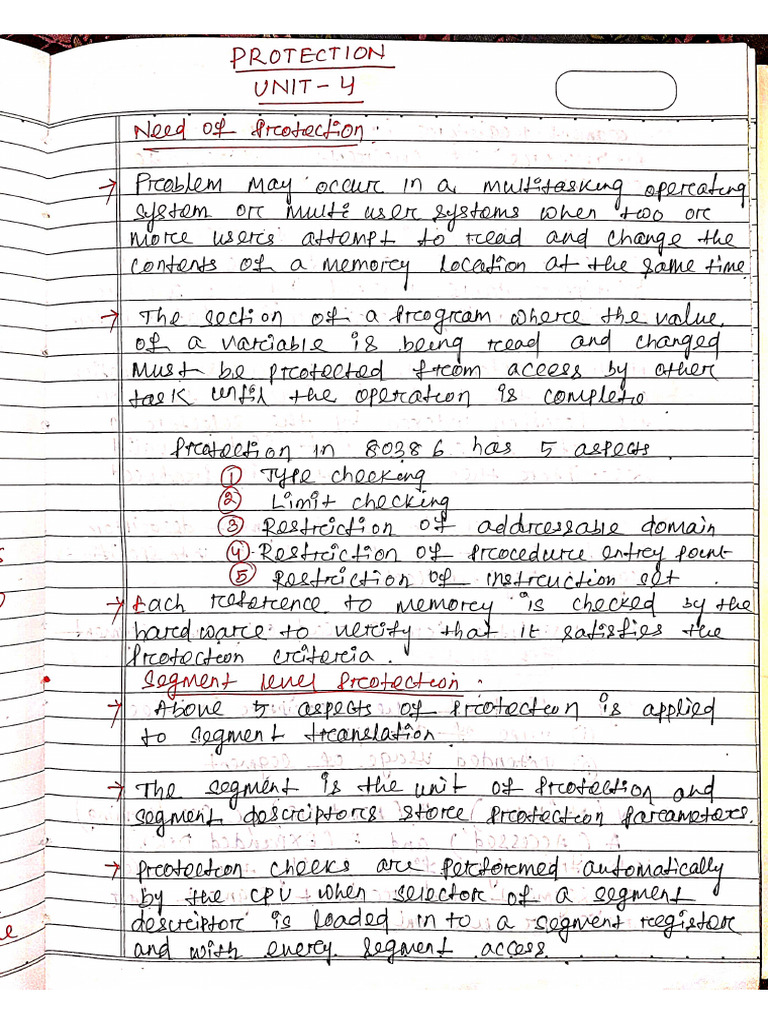 PROTECTION
UNIT-4
Need of Protection:
→ Problem may occur in a multitasking operating
system or multi user systems when two or
more users attempt to read and change the
contents of a memory location at the same time
→ The section of a program where the value
of a variable is being read and changed
must be protected from access by other
task until the operation is complete
Protection in 80386 has 5 aspects
① Type checking
② Limit checking
③ Restriction of addressable domain
④ Restriction of procedure entry point
⑤ Restriction of instruction set.
→ Each reference to memory is checked by the
hardware to verify that it satisfies the
protection criteria.
Segment level Protection:
→ Above 5 aspects of protection is applied
to segment translation.
→ The segment is the unit of protection and
segment descriptors store protection parameters.
→ Protection checks are performed automatically
by the CPU when selector of a segment
descriptor is loaded in to a segment register
and with every segment access.